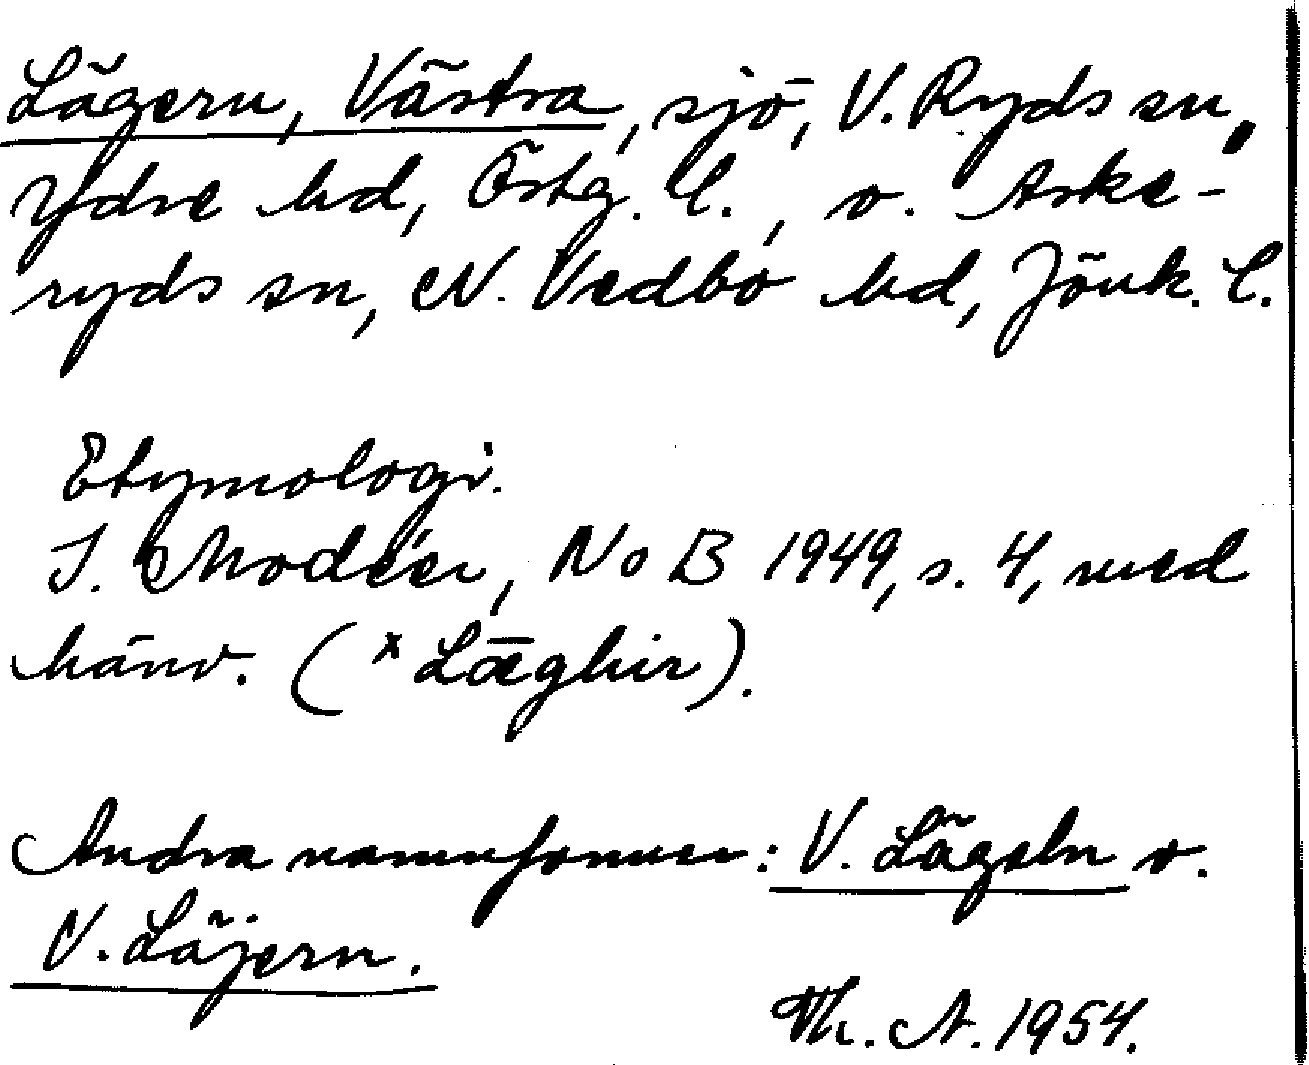 Lägern, Västra, sjö, V. Ryds sn,
Ydre hd, Östg. l., o. Aske-
ryds sn, N. Vedbo hd, Jönk. l.
Etymologi.
I. Modéer, NoB 1949, s. 4, med
hänv. (ˣ Lǣghir).
Andra namnformer: V. Lägeln o.
V. Läjern.
Th. A. 1954.